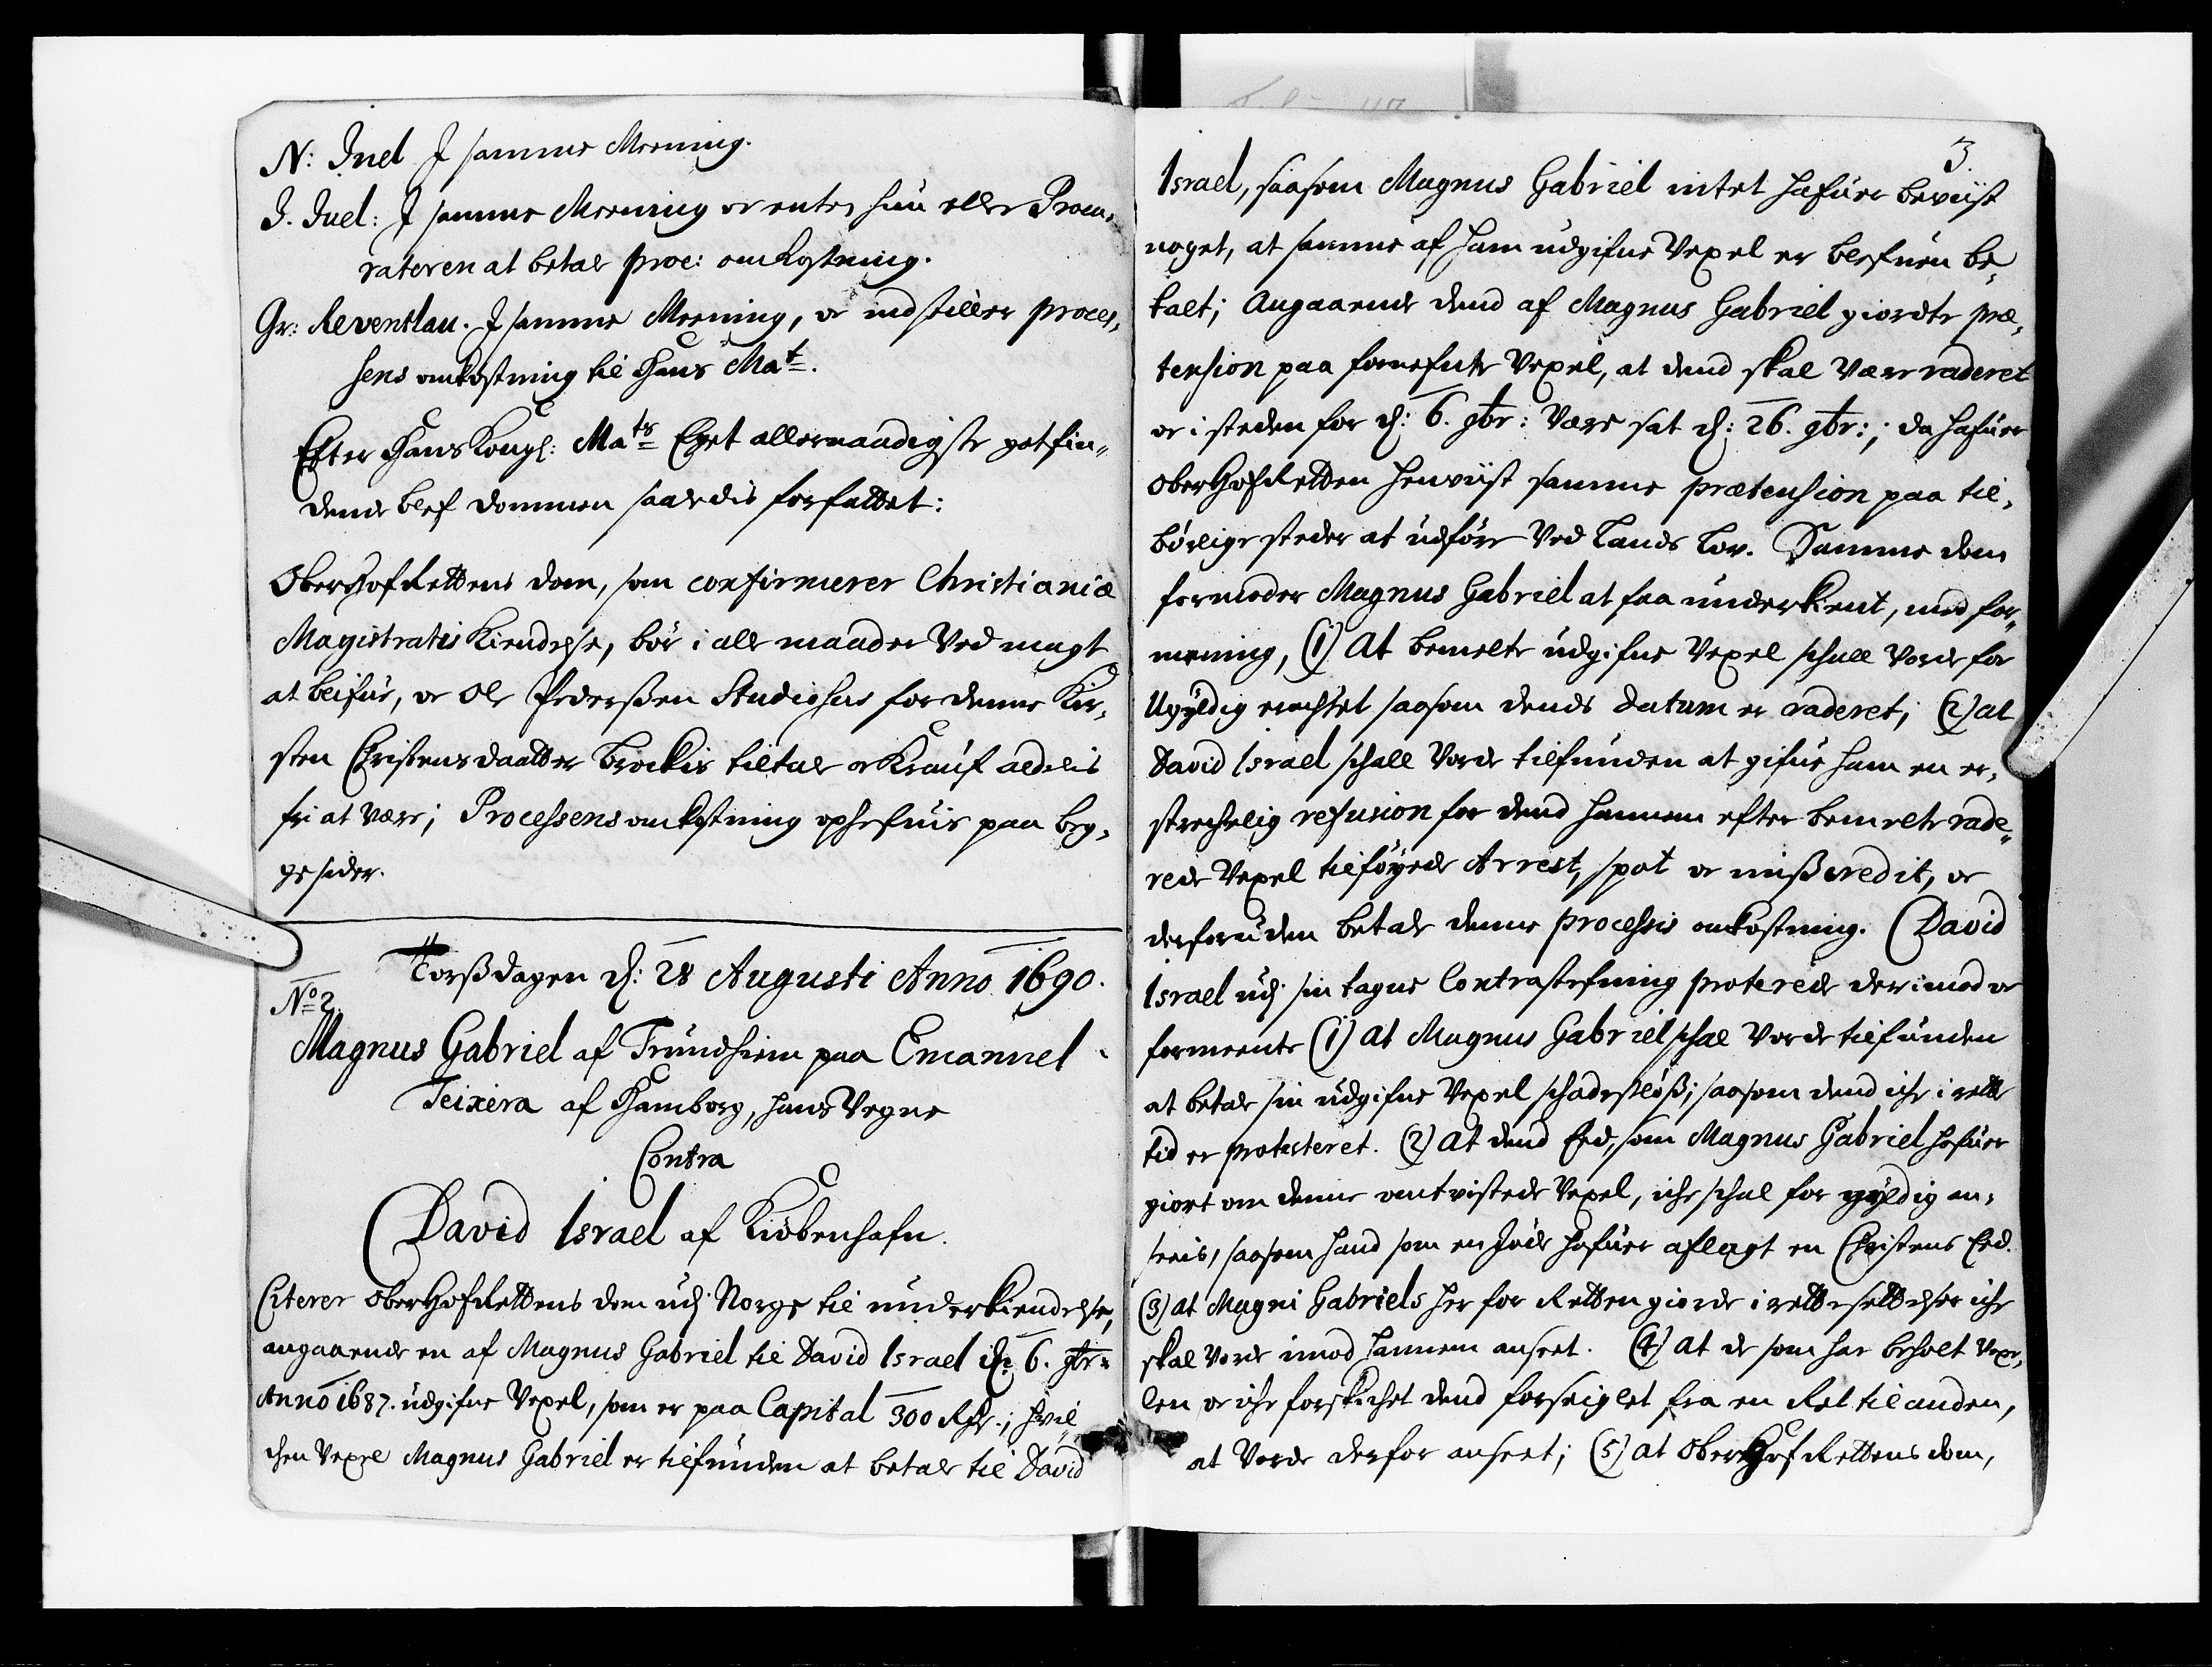 N: Juel I samme Meening.
J. Juel: I samme Meening oc enten hun eller Procu-
ratoren at betale proc: omkostning.
Gr: Reventlau. I samme Meening, oc indstiller proces-
sens omkostning til Hans Mat.
Efter Hans Kongl: Mats Eget allernaadigste gotfin-
dende blef dommen saaledis forfattet:
OberHofRettens dom, som confirmerer Christianiæ
Magistratis Kiendelse, bør i alle maader Ved magt
at blifue, oc Ole Pederßen Studiosus for denne Kir-
sten Christensdaatter Brockis tiltale oc Krauf aldelis
fri at være; Processens omkostning ophefuis paa beg-
ge sider.
Torßdagen d: 28 Augusti Anno 1690.
No 2.
Magnus Gabriel af Trundhiem paa Emanuel
Teixera af Hamborg, hans Vegne
Contra
David Israel af Kiöbenhafn.
Citerer OberHofRettens dom udj Norge til underkiendelse,
angaaende en af Magnus Gabriel til David Israel d: 6. 9br:
Anno 1687. udgifne Vexel, som er paa Capital 300 Rdr.; hvil-
chen Vexel Magnus Gabriel er tilfunden at betale til David
3.
Israel, saasom Magnus Gabriel intet hafuer beviist
noget, at samme af ham udgifne Vexel er blefuen be-
talt; Angaaende dend af Magnus Gabriel giordte præ-
tension paa fornefnte Vexel, at dend skal Være raderet
oc i steden for d: 6. 9br: Være sat d: 26. 9br:; da hafuer
OberHofRetten henviist samme prætension paa til-
børlige steder at udføre Ved Lands Lov. Samme dom
formoder Magnus Gabriel at faa underkient, med for-
mening, (1) At bemelte udgifne Vexel schall Vorde for
Ugyldig erachtet saasom dends datum er raderet; (2) at
David Israel schall Vorde tilfunden at gifue ham en er-
strechelig refusion for dend hannem efter bemelte rade-
rede Vexel tilføyede Arrest, spot oc mißcredit, oc
desforuden betale denne processis omkostning. David
Israel udj sin tagne Contrastefning proterede derimod oc
formeente (1) at Magnus Gabriel schal Vorde tilfunden
at betale sin udgifne Vexel schadesløß; saasom dend iche i rette
tid er protesteret. (2) at dend Eed, som Magnus Gabriel hafuer
giort om denne omtvistede Vexel, iche schal for gyldig an-
seeis, saasom hand som en Jøde hafuer aflagt en Christens Eed.
(3) at Magni Gabriels her for Retten giorde i rette settelser iche
skal Vorde imod hannem anseet. (4) at de som har beholt Vexe-
len oc iche forskichet dend forseiglet fra en Ret til anden,
at Vorde derfor anseet; (5) at OberHofRettens dom,